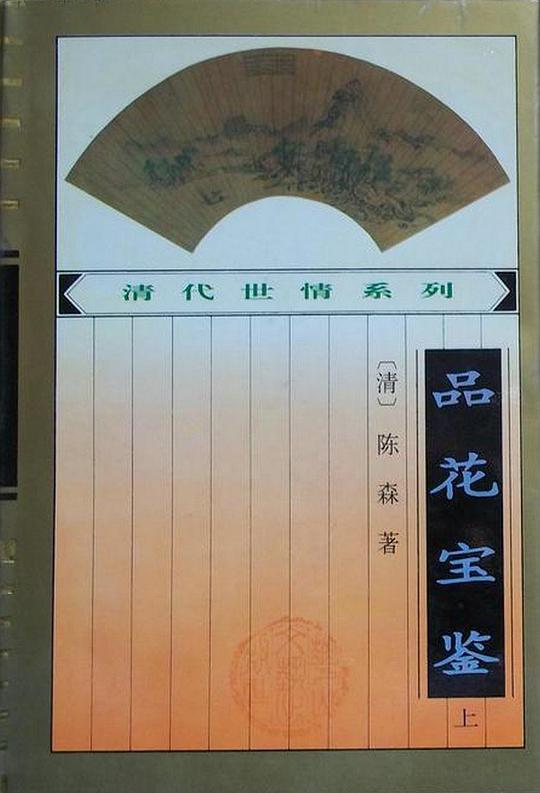 清代世情系列
品花宝鉴
上
〔清〕陈森著